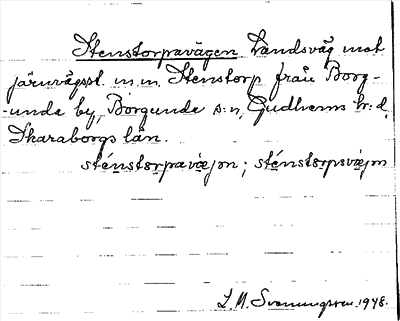 Stenstorpavägen Landsväg mot
järnvägsst. m.m. Stenstorp från Borg-
unda by, Borgunda s:n, Gudhems hr:d,
Skaraborgs län.
sténstorpavæjən; sténstorpsvæjən
L. M. Svenungsson 1948.